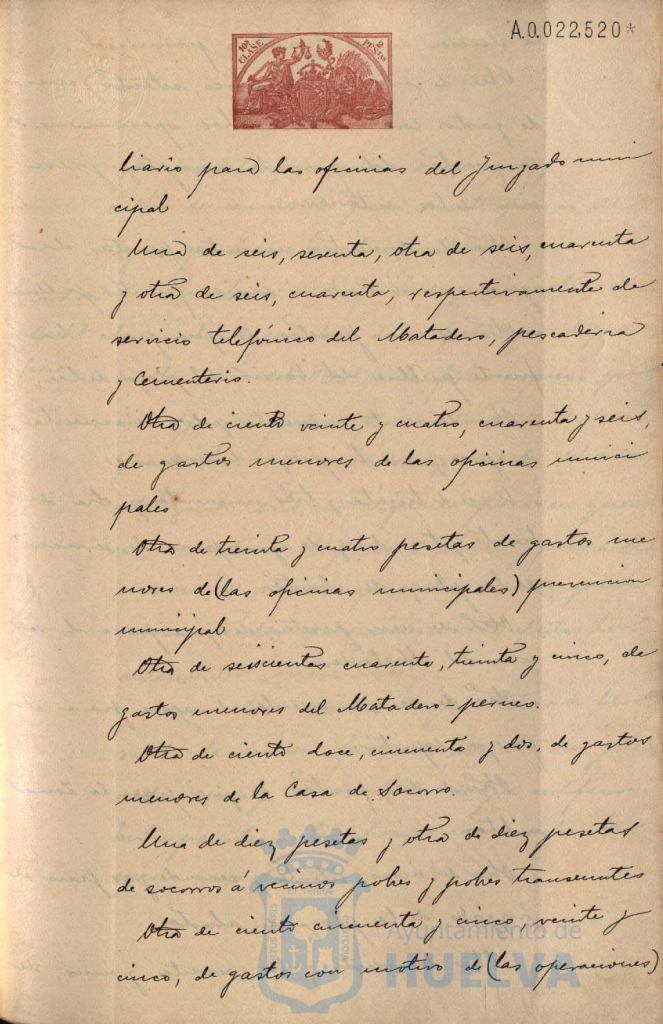 A.0.022,520*
10ª CLASE
2 PESETAS
liario para las oficinas del Juzgado muni
cipal
Una de seis, sesenta, otra de seis, cuarenta
y otra de seis, cuarenta, respectivamente de
servicio telefónico del Matadero, pescaderia
y Cementerio.
Otra de ciento veinte y cuatro, cuarenta y seis,
de gastos menores de las oficinas munici
pales
Otra de treinta y cuatro pesetas de gastos me
nores de (las oficinas municipales) prevencion
municipal
Otra de seiscientas cuarenta, treinta y cinco, de
gastos menores del Matadero-perneo.
Otra de ciento doce, cincuenta y dos, de gastos
menores de la Casa de Socorro.
Una de diez pesetas y otra de diez pesetas
de socorros á vecinos pobres y pobres transeuntes
Otra de ciento cincuenta y cinco, veinte y
cinco, de gastos con motivo de (las operaciones)
Ayuntamiento de
HUELVA